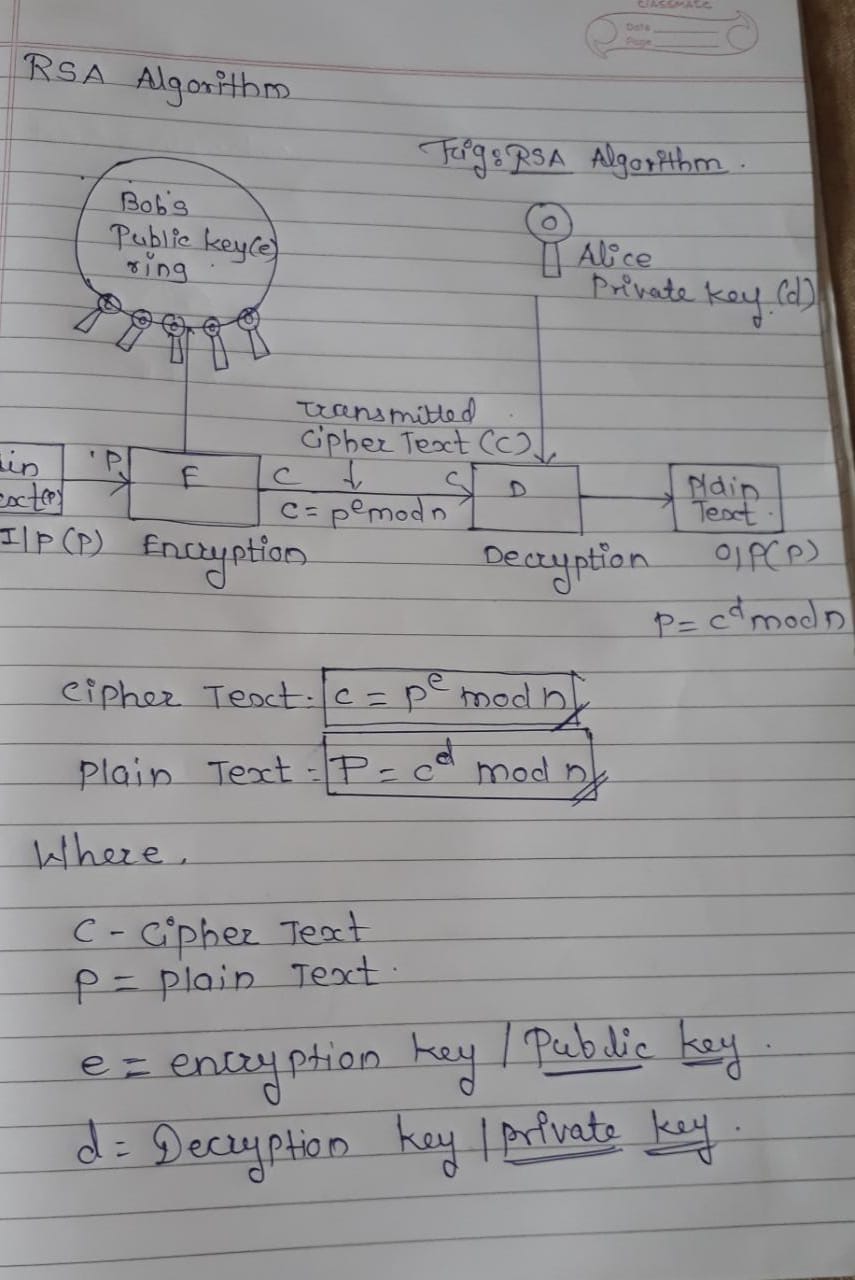 CLASSMATE
Date
Page
RSA Algorithm
Fig: RSA Algorithm.
Bob's
Public key(e)
ring
Alice
Private key (d)
Transmitted
Cipher Text (C)
in
ext(P)
P
E
C
C
C = P^e mod n
D
Plain
Text.
I/P (P)
Encryption
Decryption
O/P(P)
P = C^d mod n
Cipher Text: C = P^e mod n
Plain Text = P = C^d mod n
Where,
C - Cipher Text
P = Plain Text.
e = encryption key / Public key.
d = Decryption key / private key.